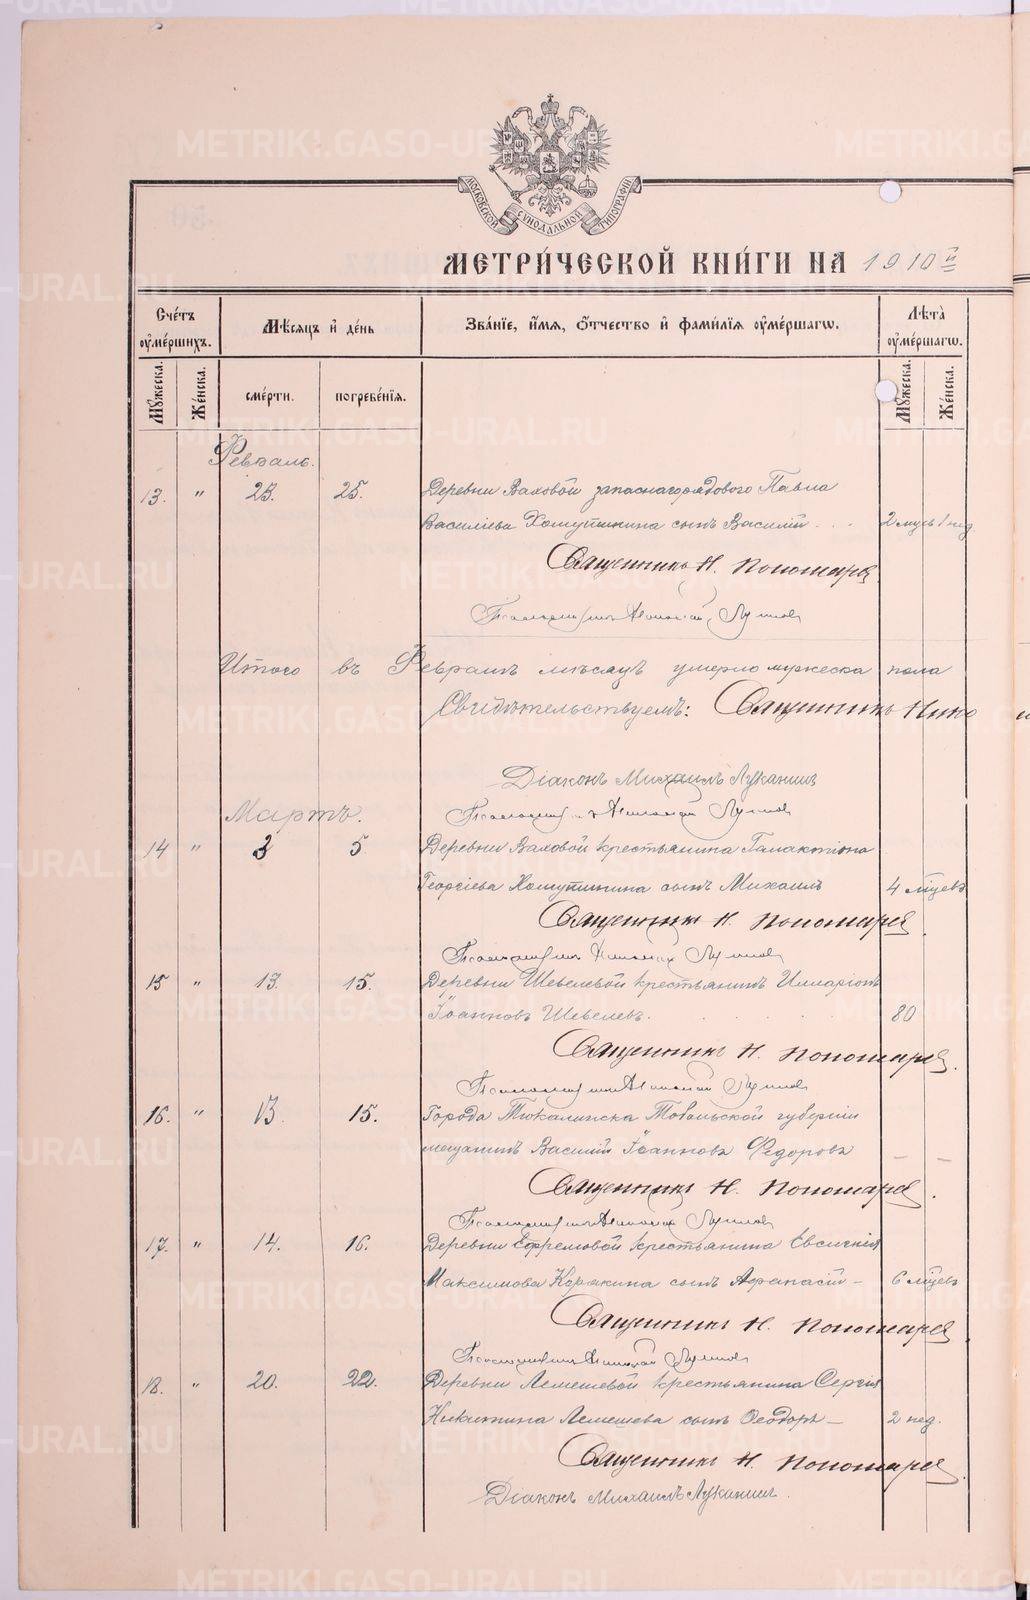 МОСКОВСКОЙ СѴНОДАЛЬНОЙ ТИПОГРАФИИ
МЕТРИ́ЧЕСКОЙ КНИ́ГИ НА 1910 г.
Сче́тъ ᲂу҆ме́ршихъ.
Мѣ́сяцъ и҆ де́нь
Зва́нїе, и҆́мѧ, ѻ҆́тчество и҆ фами́лїѧ ᲂу҆ме́ршагѡ.
Лѣ́та ᲂу҆ме́ршагѡ.
Мꙋ́жеска.
Же́нска.
сме́рти.
погребе́нїѧ.
Мꙋ́жеска.
Же́нска.
Февраль.
13. " 23. 25. Деревни Ваховой запаснаго рядового Павла
Василіева сынъ Василій . . . 2 мцъ 1 нед.
Священникъ Н. Пономарев
Псаломщикъ
Итого въ Февралѣ мѣсяцѣ умерло мужеска пола
Свидѣтельствуемъ: Священникъ Нико
Діаконъ Михаилъ Луканинъ
Псаломщикъ
Мартъ.
14 " 3 5. Деревни Ваховой крестьянина Галактіона
Георгіева сынъ Михаилъ 4 мцевъ
Священник Н. Пономарев.
Псаломщикъ
15 " 13. 15. Деревни Шевелевой крестьянинъ Илларіонъ
Іоанновъ Шевелевъ. . . . . . 80
Священник Н. Пономарев.
Псаломщикъ
16. " 13. 15. Города Тюкалинска Тобольской губерніи
мещанинъ Василій Іоанновъ Федоровъ – –
Священник Н. Пономарев.
Псаломщикъ
17. " 14. 16. Деревни Ефремовой крестьянина Евсигнія
Максимова Корякина сынъ Афанасій – 6 мцевъ
Священник Н. Пономарев.
Псаломщикъ
18. " 20. 22. Деревни Лемешевой крестьянина Сергія
Никитина Лемешева сынъ Ѳеодоръ – 2 нед.
Священник Н. Пономарев.
Діаконъ Михаилъ Луканинъ.
METRIKI.GASO-URAL.RU